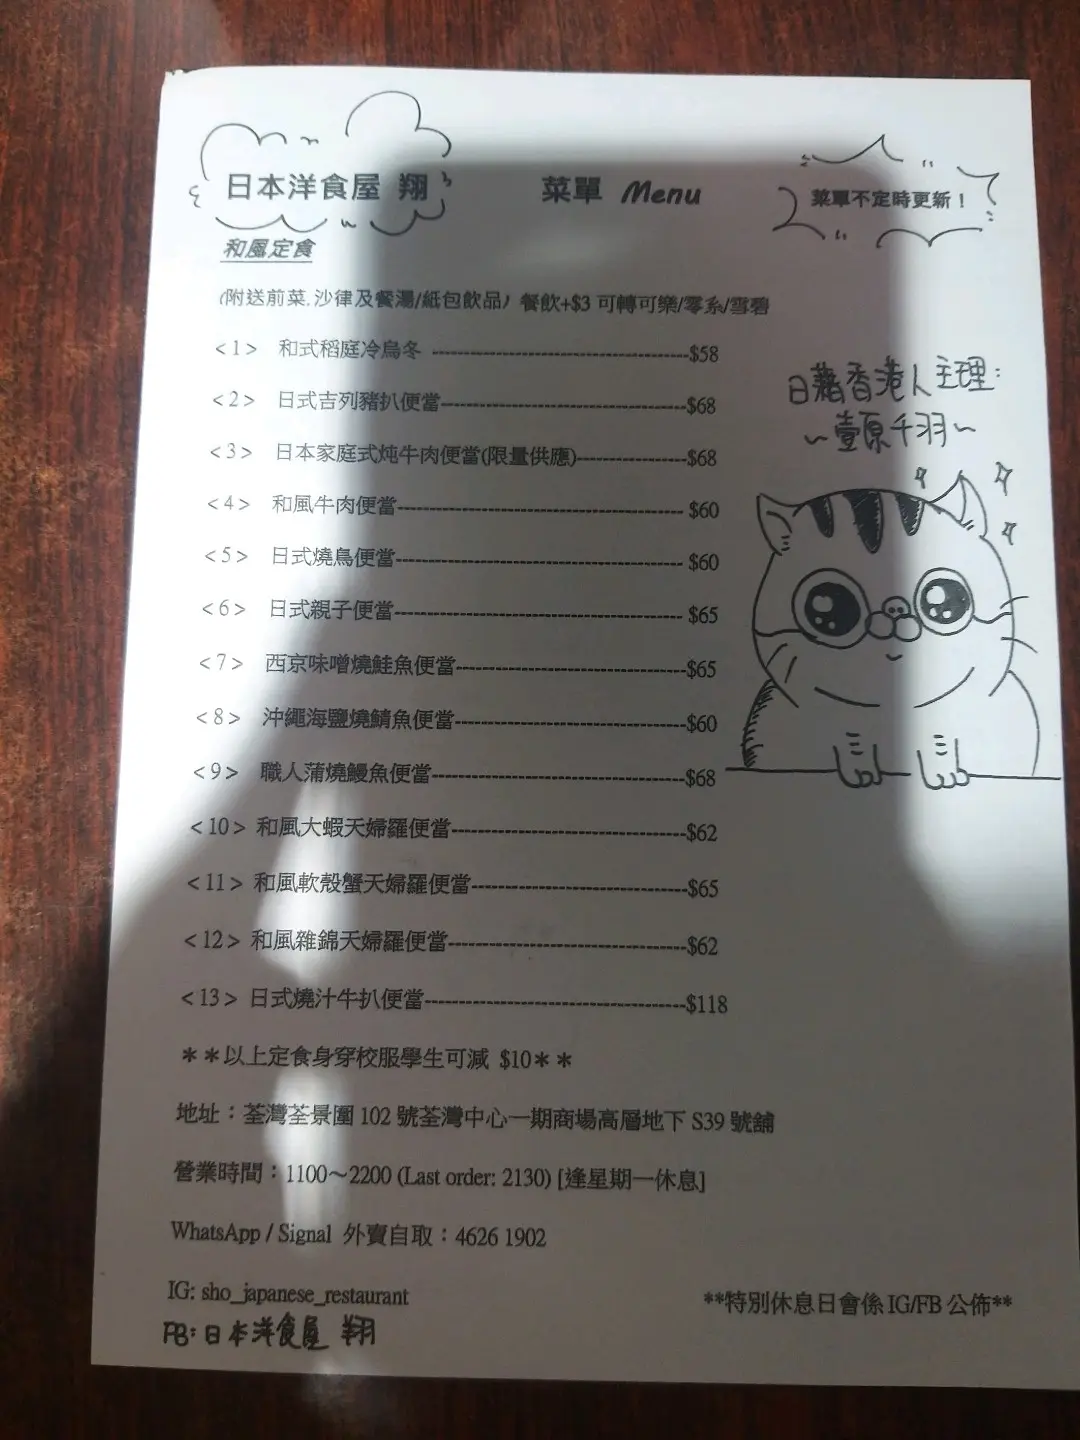 日本洋食屋 翔
菜單 Menu
菜單不定時更新！
和風定食
(附送前菜.沙律及餐湯/紙包飲品) 餐飲+$3 可轉可樂/零系/雪碧
<1> 和式稻庭冷烏冬 ---------------------------------------$58
<2> 日式吉列豬扒便當-------------------------------------$68
<3> 日本家庭式炖牛肉便當(限量供應)----------------$68
<4> 和風牛肉便當------------------------------------------ $60
<5> 日式燒鳥便當------------------------------------------ $60
<6> 日式親子便當------------------------------------------ $65
<7> 西京味噌燒鮭魚便當----------------------------------$65
<8> 沖繩海鹽燒鯖魚便當----------------------------------$60
<9> 職人蒲燒鰻魚便當-------------------------------------$68
<10> 和風大蝦天婦羅便當----------------------------------$62
<11> 和風軟殼蟹天婦羅便當-------------------------------$65
<12> 和風雜錦天婦羅便當----------------------------------$62
<13> 日式燒汁牛扒便當--------------------------------------$118
**以上定食身穿校服學生可減 $10**
日藉香港人主理:
~壹原千羽~
地址：荃灣荃景圍 102 號荃灣中心一期商場高層地下 S39 號舖
營業時間：1100～2200 (Last order: 2130) [逢星期一休息]
WhatsApp / Signal 外賣自取：4626 1902
IG: sho_japanese_restaurant
**特別休息日會係 IG/FB 公佈**
FB: 日本洋食屋 翔